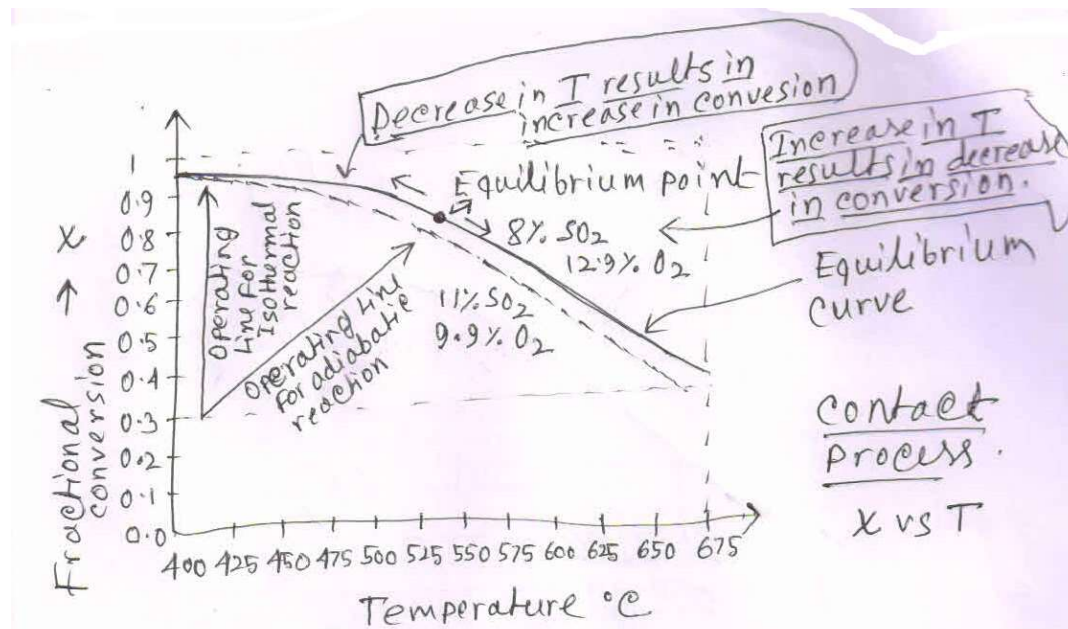 Decrease in T results in
increase in convesion
Increase in T
results in decrease
in conversion.
Equilibrium point
8% SO2
12.9% O2
Equilibrium
curve
11% SO2
9.9% O2
Operating
Line For
Isothermal
reaction
Operating Line
For adiabatic
reaction
Fractional
conversion
→ X
1
0.9
0.8
0.7
0.6
0.5
0.4
0.3
0.2
0.1
0.0
400 425 450 475 500 525 550 575 600 625 650 675
Temperature °C
Contact
Process.
X vs T